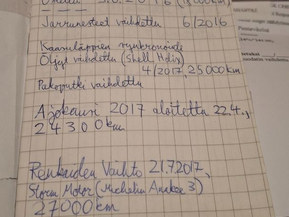 Jarrunesteet vaihdettu 6/2016
Kaasuläppien synkronointi
Öljyt vaihdettu (Shell Helix)
4/2017, 25 000 km
Pakoputki vaihdettu
Ajokausi 2017 aloitettu 22.4.,
24300km
Renkaiden Vaihto 21.7.2017,
Storm Motor (Michelin Anakee 3)
27000 km